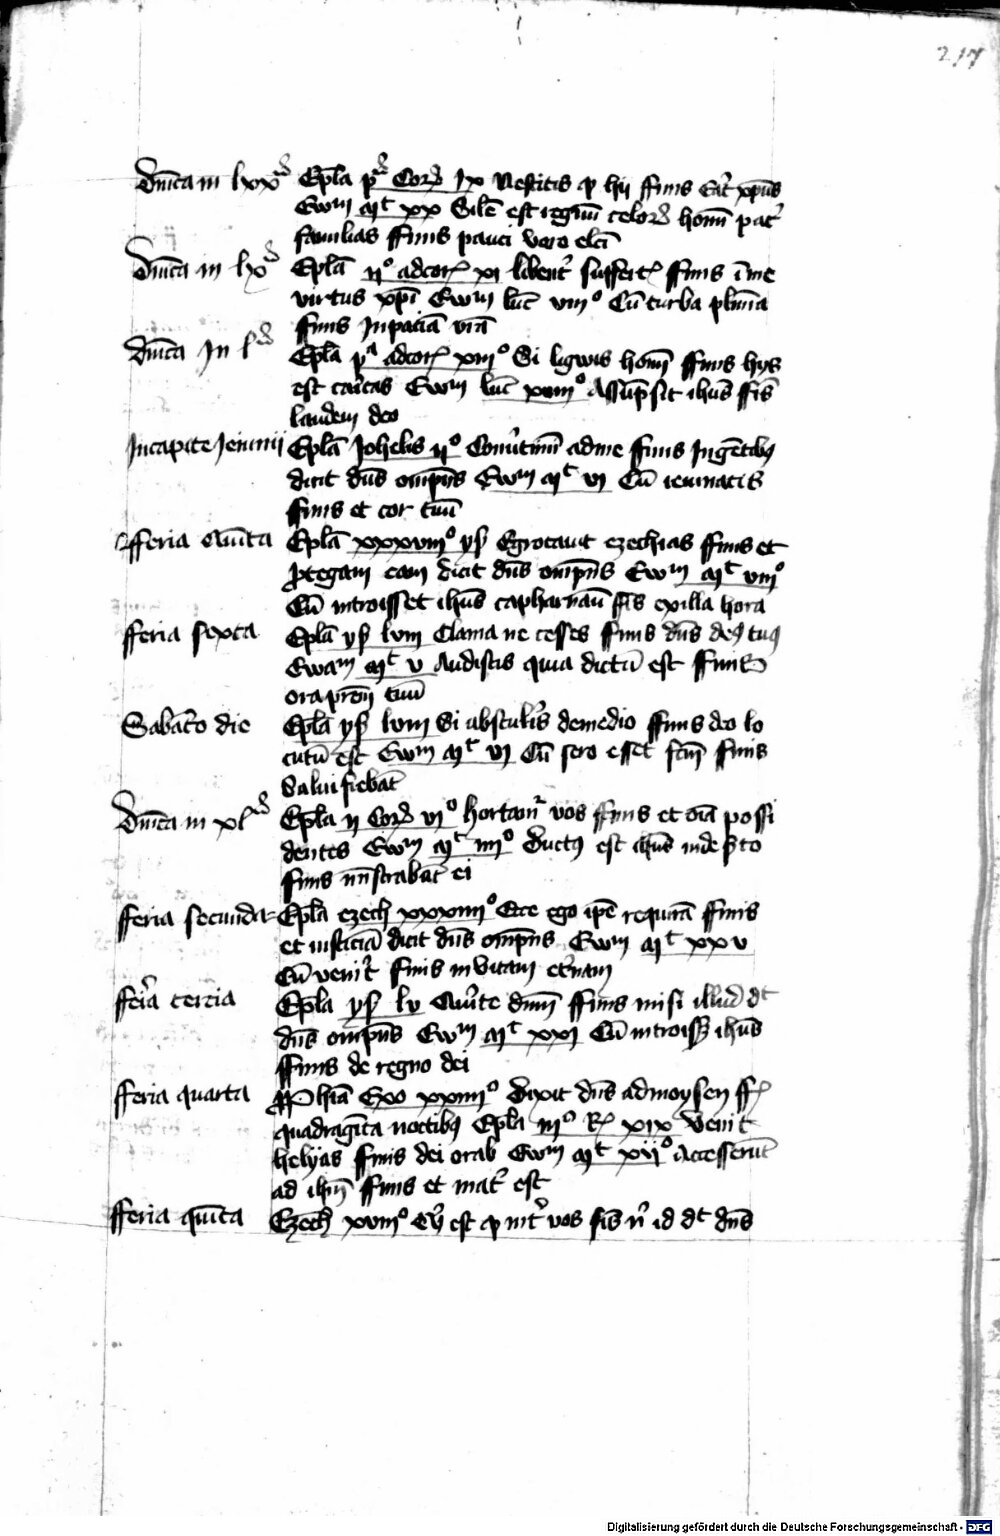 217
Dn̄ica in lxxᵃ Ep̄la pᵃ Corꝫ ix Nescitis ꝙ hij ffinis Eāt xp̄us
Ewm mt xx Sile est regnū celorꝫ homī pat
familias ffinis pauci vero elc̄i
Dn̄ica in lxᵃ Ep̄la ijº ad cor xi libent suffert ffinis ī me
virtus xp̄i Ewm luc viijº Cū turba plīma
ffinis In pacīa
Dn̄ica In lᵃ Ep̄la pᵃ ad cor xiijº Si ligwis homī ffinis hijs
est caritas Ewm luc xviijº Assūpsit ihūs ffis
laudem deo
In capite Jeiunij Ep̄la Johelis ijº Conūtim̄ ad me ffinis In gētibꝫ
dicit dn̄s omp̄ns Ewm mt vi Cū ieiunatis
ffinis et cor tuū
fferia Quīta Ep̄la xxxviijº ys Egrotauit ezechias ffinis et
ꝓtegam eam dicit dn̄s omp̄ns Ewm mt viijº
Cū introisset ihūs capharnāu ffis ex illa hora
feria sexta Ep̄la ys lviij Clama ne cesses ffinis dn̄s deꝯ tuꝯ
Ewam mt v Audistis quia dictū est ffinis
ora pr̄em tuū
Sabāto die Ep̄la ys lviij Si abstulis de medio ffinis deo lo
cutū est Ewm mt vi Cū sero esset fcm̄ ffinis
Salui fiebāt
Dn̄ica in xlᵃ Ep̄la ij Corꝫ viº hortam̄ vos ffinis et oīa possi
dentes Ewm mt iiijº Ductꝯ est ihūs in deserto
ffinis mīstrabāt ei
fferia secunda Ep̄la ezech xxxiiijº Ecce ego ip̄e requirā ffinis
et iusticiā dicit dn̄s omp̄ns Ewm mt xxv
Cū venit ffinis in vitam et̄nam
ffeīa tercia Ep̄la ys lv Quīte dnm̄ ffinis misi illud dt
dn̄s omp̄ns Ewm mt xxi Cū introiss ihūs
ffinis de regno dei
fferia quarta Pphīa Exo xxiiijº Dixit dn̄s ad moysen ff
quadragīta noctibꝫ Ep̄la iijº R xix Venit
helyas ffinis dei orab Ewm mt xijº Accesserūt
ad ihm̄ ffinis et mat est
fferia quīta Ezech xviijº Qd est ꝙ int vos ffis id dt dn̄s
Digitalisierung gefördert durch die Deutsche Forschungsgemeinschaft - DFG